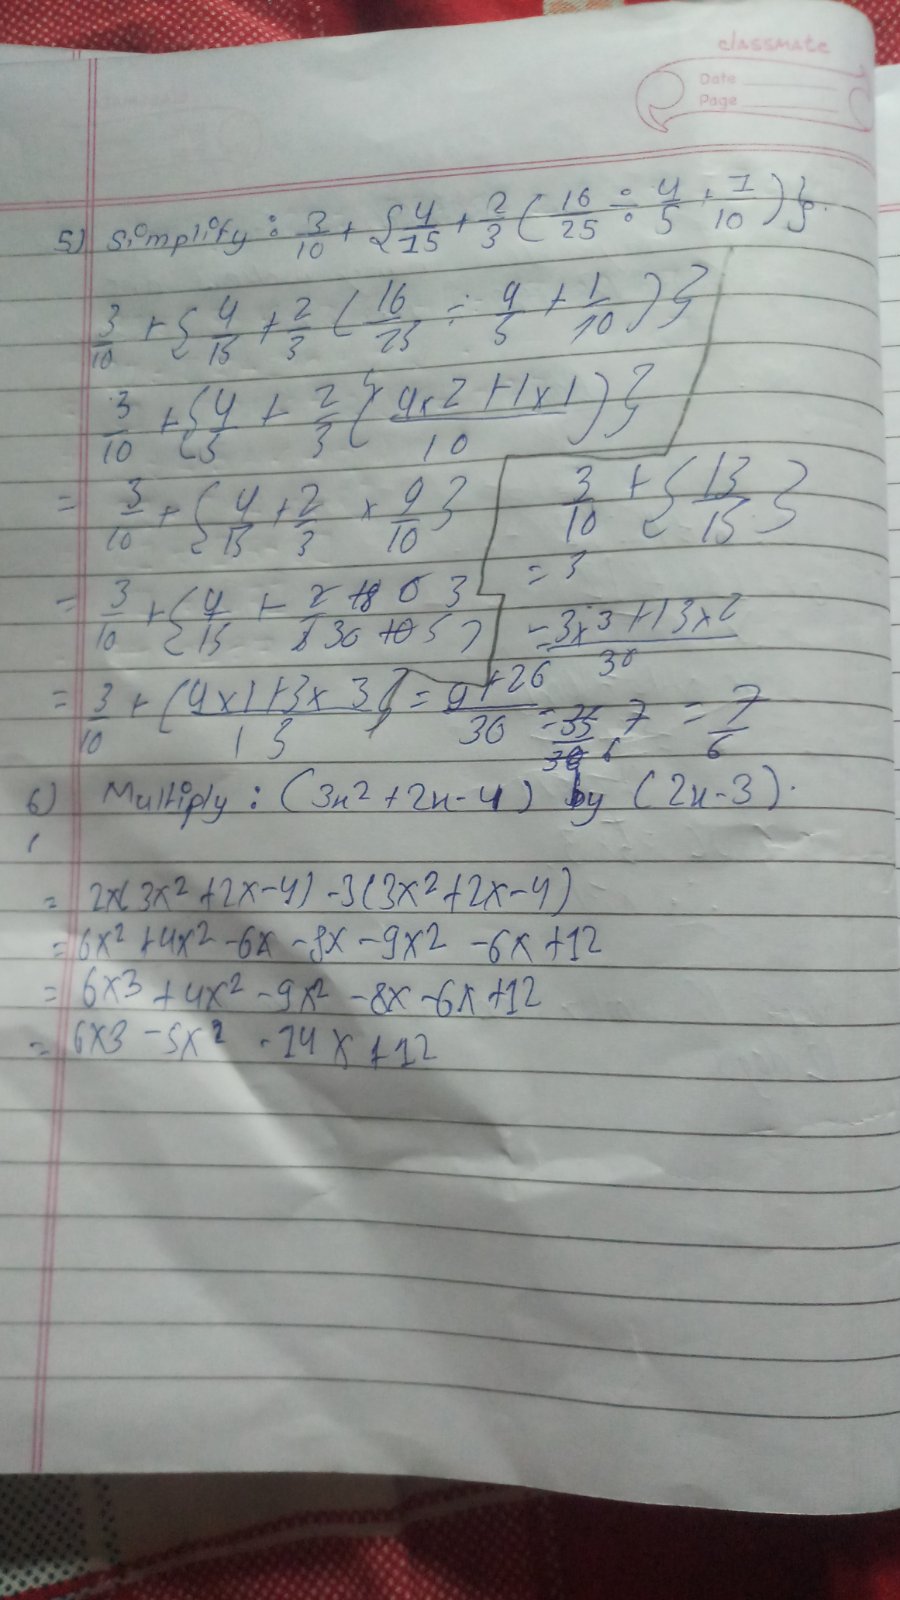 classmate
Date
Page
5) Simplify : 3/10 + {4/15 + 2/3 (16/25 ÷ 4/5 + 1/10)}.
3/10 + {4/15 + 2/3 (16/25 ÷ 4/5 + 1/10)}
3/10 + {4/5 + 2/3 (4x2+1x1/10)}
= 3/10 + {4/15 + 2/3 x 9/10}
= 3/10 + {4/15 +
= 3/10 + (4x1+3x3/15)
3/10 + {13/15}
= 3
= 3x3+13x2/30
= 9+26/30 = 35/30 7/6 = 7/6
6) Multiply : (3x²+2x-4) by (2x-3).
= 2x(3x²+2x-4) -3(3x²+2x-4)
= 6x² +4x² -6x -8x -9x² -6x +12
= 6x3 +4x² -9x² -8x -6x +12
= 6x3 -5x² -14x +12